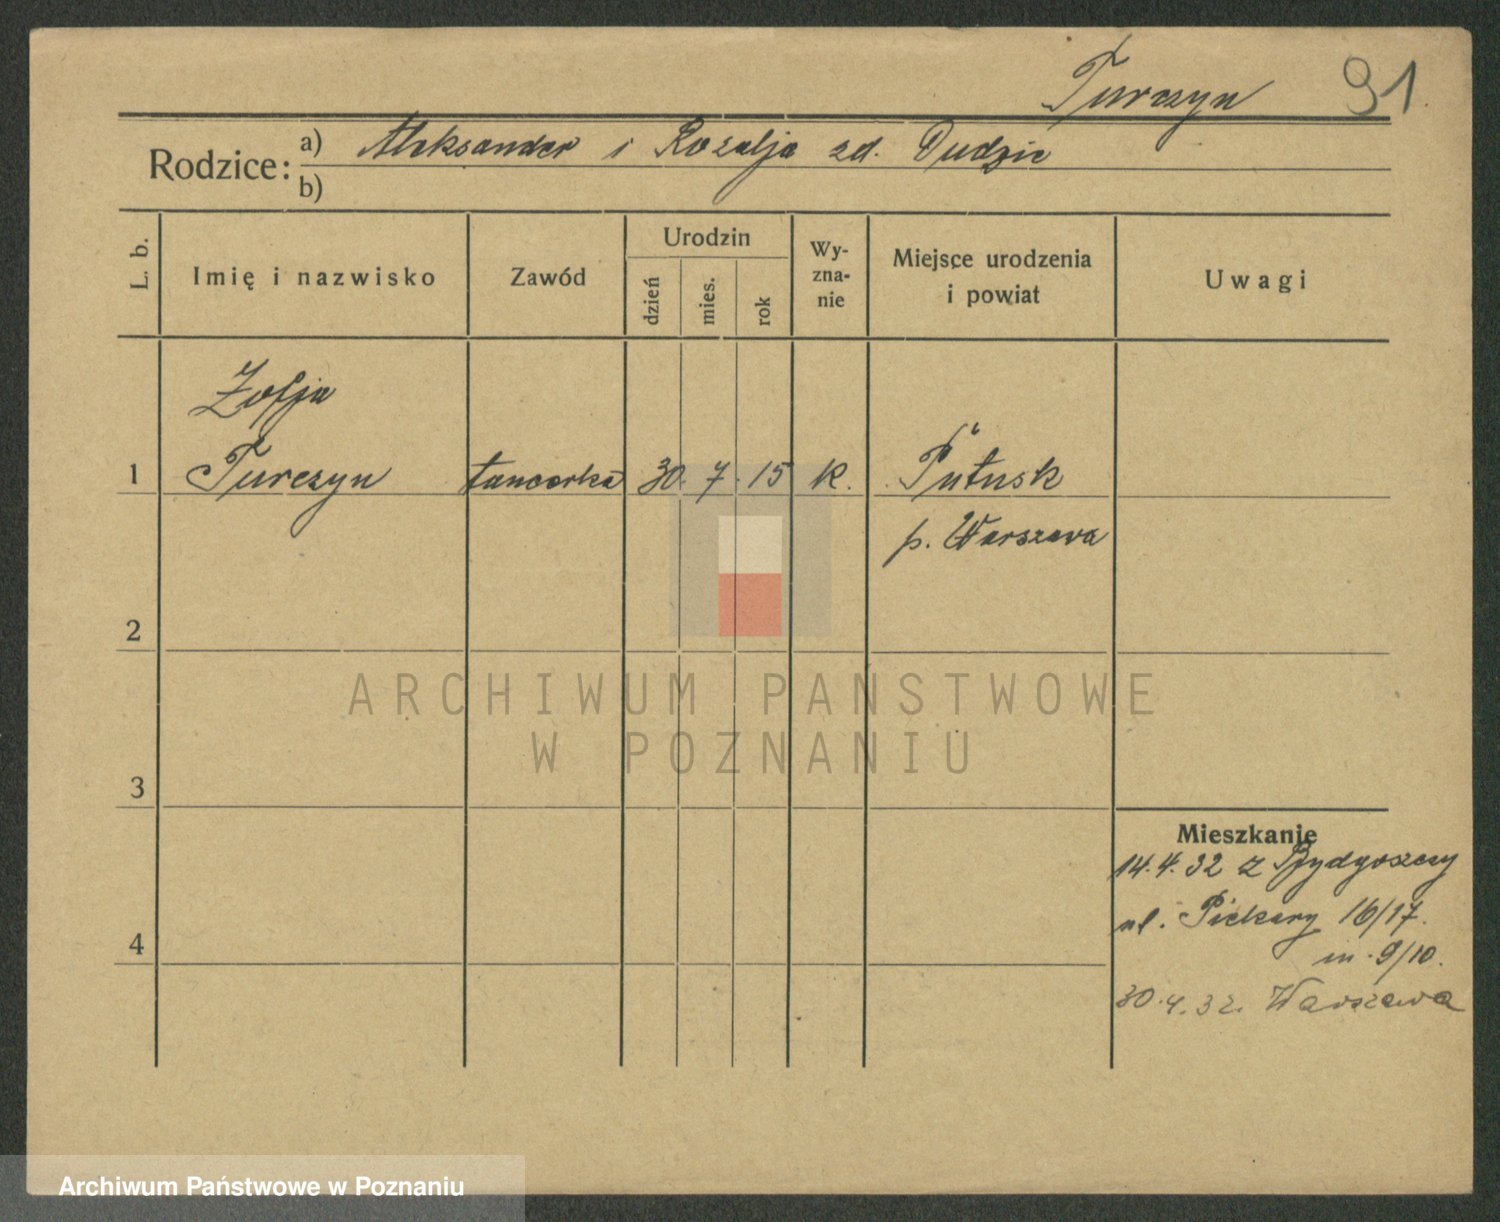 Turczyn 91
Rodzice: a) Aleksander i Rozalja zd. Dudzic
b)
L. b.
Imię i nazwisko
Zawód
Urodzin
dzień
mies.
rok
Wy-
zna-
nie
Miejsce urodzenia
i powiat
Uwagi
Zofja
1 Turczyn tancerka 30. 7. 15 k. Pułtusk
p. Warszawa
2
3
4
Mieszkanie
14.4.32 z Bydgoszczy
ul. Piekary 16/17.
m. 9/10.
30.4.32. Warszawa
ARCHIWUM PAŃSTWOWE
W POZNANIU
Archiwum Państwowe w Poznaniu